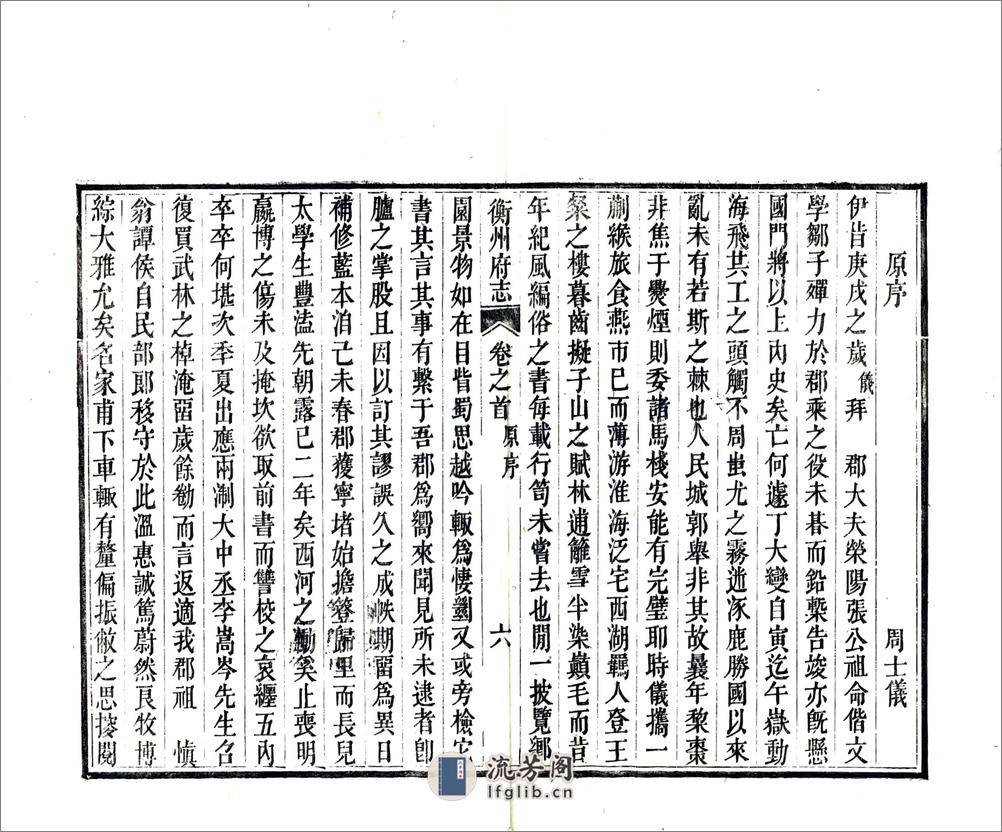 原序 周士儀
伊昔庚戌之歲儀拜 郡大夫滎陽張公祖命偕文
學鄒子殫力於郡乘之役未朞而鉛槧告竣亦旣懸
國門將以上內史矣亡何遽丁大變自寅迄午嶽動
海飛共工之頭觸不周蚩尤之霧迷涿鹿勝國以來
亂未有若斯之棘也人民城郭舉非其故曩年黎棗
非焦于爨煙則委諸馬棧安能有完璧耶時儀攜一
蒯緱旅食燕市已而薄游淮海泛宅西湖羈人登王
粲之樓暮齒擬子山之賦林逋籬雪半染巔毛而昔
年紀風編俗之書每載行笥未嘗去也閒一披覽鄉
衡州府志 卷之首 原序 六
園景物如在目眥蜀思越吟輙爲悽 又或旁檢它
書其言其事有繫于吾郡爲嚮來聞見所未逮者卽
臚之掌股且因以訂其謬誤久之成帙期留爲異日
補修藍本洎己未春郡獲寧堵始擔簦歸里而長兒
太學生豐溘先朝露已二年矣西河之 奚止喪明
嬴博之傷未及掩坎欲取前書而讐校之哀纏五內
卒卒何堪次年夏出應兩淛大中丞李嵩岑先生召
復買武林之棹淹留歲餘勌而言返適我郡祖 愼
翁譚侯自民部郞移守於此溫惠誠篤蔚然良牧博
綜大雅允矣名家甫下車輙有釐偏振敝之思搜閱
流芳阁
lfglib.cn